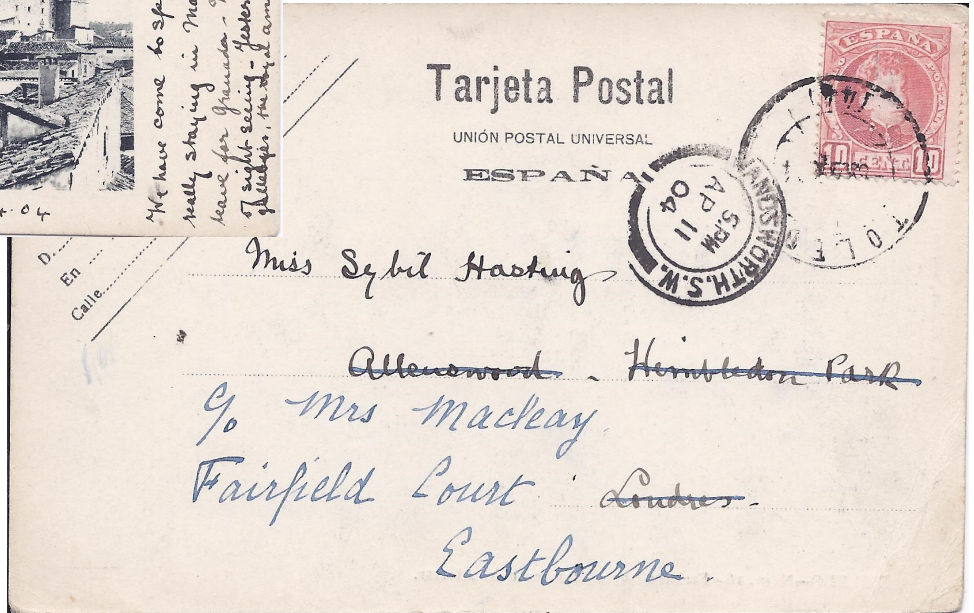 We have come to
really staying in
leave for Granada -
of sight seeing -
galleries, the royal
4.04
Tarjeta Postal
UNIÓN POSTAL UNIVERSAL
ESPAÑA
ESPAÑA
10 CENT 10
TOLEDO
WANDSWORTH. S.W.
5. PM
AP 11
04
D.
En
Calle
Miss Sybil Hasting
Allenswood - Wimbledon Park
c/o Mrs Mackay
Fairfield Court Londres.
Eastbourne.